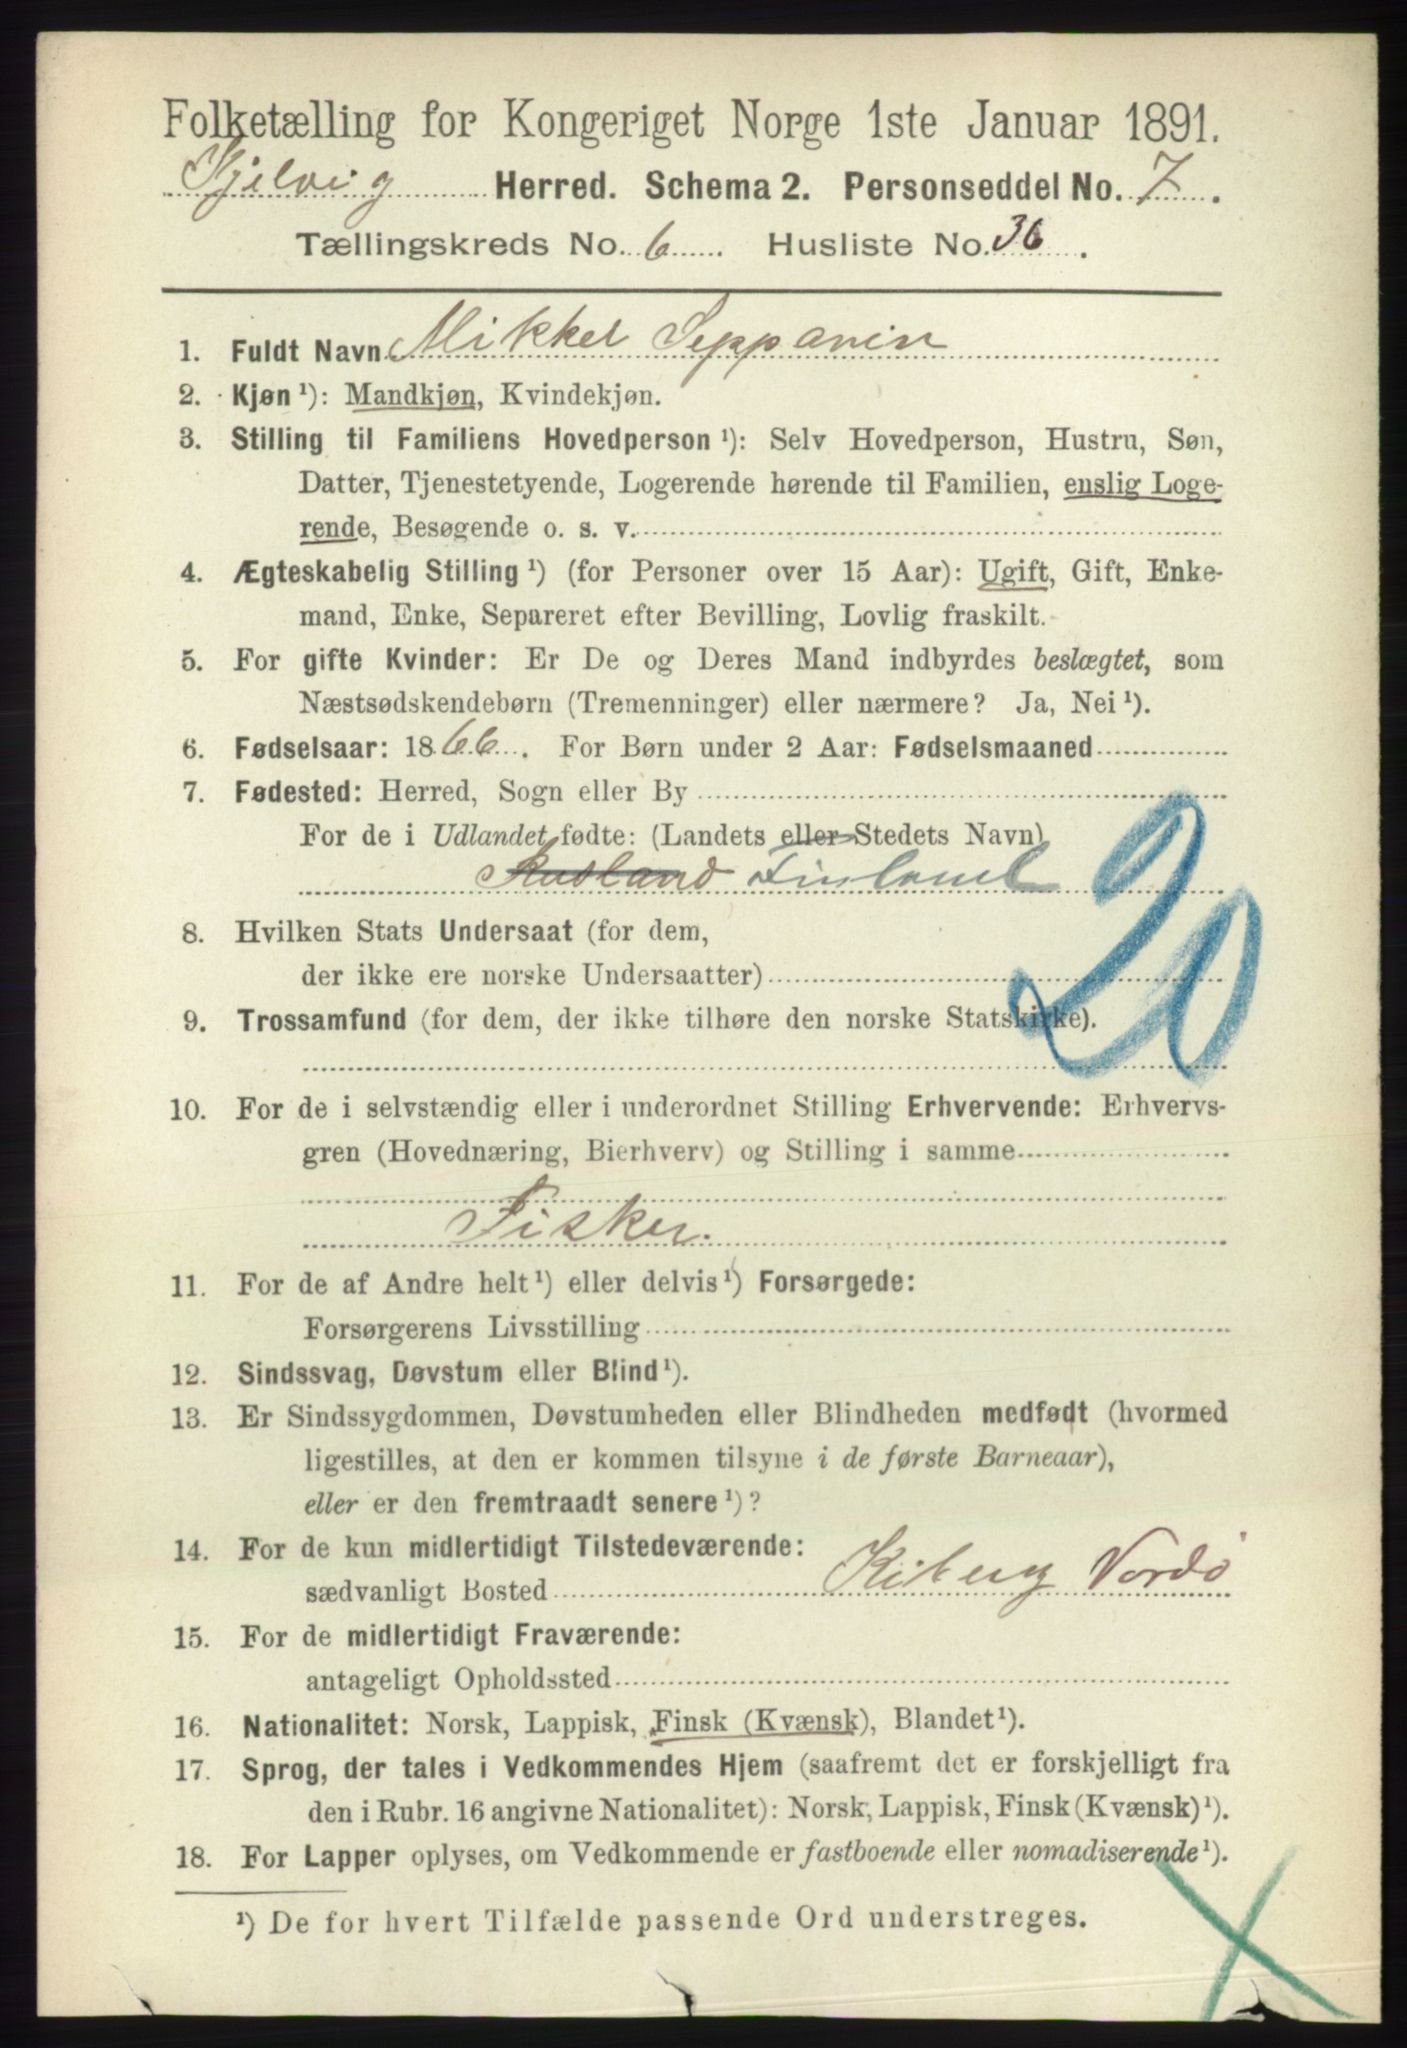 Folketælling for Kongeriget Norge 1ste Januar 1891.
Kjelvig Herred. Schema 2. Personseddel No. 7.
Tællingskreds No. 6 Husliste No. 36.
1. Fuldt Navn Mikkel Seppanin
2. Kjøn¹): Mandkjøn, Kvindekjøn.
3. Stilling til Familiens Hovedperson¹): Selv Hovedperson, Hustru, Søn,
Datter, Tjenestetyende, Logerende hørende til Familien, enslig Loge-
rende, Besøgende o. s. v.
4. Ægteskabelig Stilling¹) (for Personer over 15 Aar): Ugift, Gift, Enke-
mand, Enke, Separeret efter Bevilling, Lovlig fraskilt.
5. For gifte Kvinder: Er De og Deres Mand indbyrdes beslægtet, som
Næstsødskendebørn (Tremenninger) eller nærmere? Ja, Nei¹).
6. Fødselsaar: 1866. For Børn under 2 Aar: Fødselsmaaned
7. Fødested: Herred, Sogn eller By
For de i Udlandet fødte: (Landets eller Stedets Navn)
Rusland Finland
20
8. Hvilken Stats Undersaat (for dem,
der ikke ere norske Undersaatter)
9. Trossamfund (for dem, der ikke tilhøre den norske Statskirke).
10. For de i selvstændig eller i underordnet Stilling Erhvervende: Erhvervs-
gren (Hovednæring, Bierhverv) og Stilling i samme
Fisker.
11. For de af Andre helt¹) eller delvis¹) Forsørgede:
Forsørgerens Livsstilling
12. Sindssvag, Døvstum eller Blind¹).
13. Er Sindssygdommen, Døvstumheden eller Blindheden medfødt (hvormed
ligestilles, at den er kommen tilsyne i de første Barneaar),
eller er den fremtraadt senere¹)?
14. For de kun midlertidigt Tilstedeværende:
sædvanligt Bosted Kiberg Vardö
15. For de midlertidigt Fraværende:
antageligt Opholdssted
16. Nationalitet: Norsk, Lappisk, Finsk (Kvænsk), Blandet¹).
17. Sprog, der tales i Vedkommendes Hjem (saafremt det er forskjelligt fra
den i Rubr. 16 angivne Nationalitet): Norsk, Lappisk, Finsk (Kvænsk)¹).
18. For Lapper oplyses, om Vedkommende er fastboende eller nomadiserende¹).
¹) De for hvert Tilfælde passende Ord understreges.